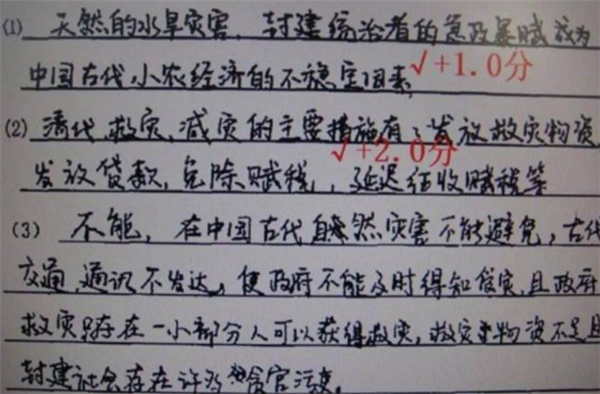 (1) 天然的水旱灾害,封建统治者的急政暴赋成为
中国古代小农经济的不稳定因素 √+1.0分
(2) 清代救灾,减灾的主要措施有:发放救灾物资
√+2.0分
发放贷款,免除赋税,延迟征收赋税等
(3) 不能,在中国古代自然灾害不能避免,古代
交通,通讯不发达,使政府不能及时得知灾,且政府
救灾只存在一小部分人可以获得救灾,救灾物资不足且
封建社会存在许多贪官污吏.